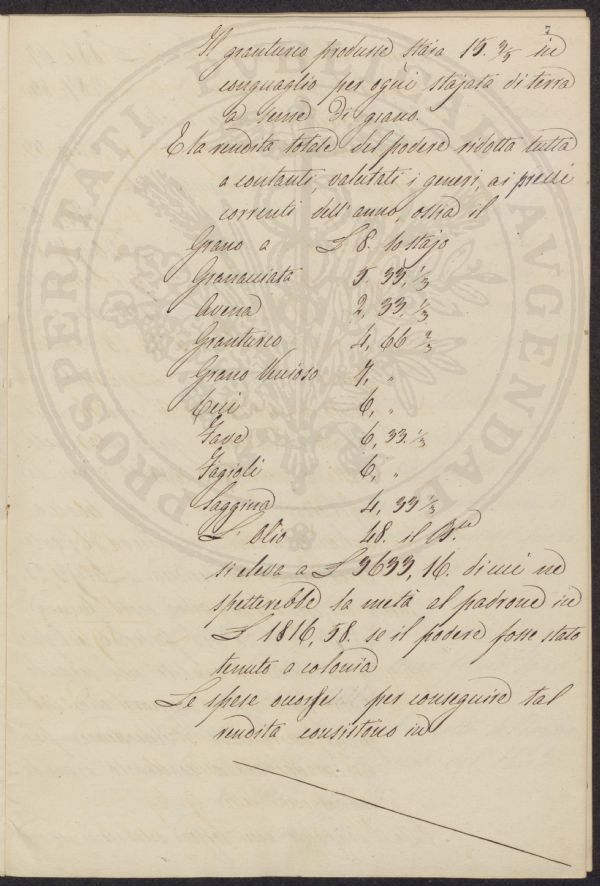 7
Il granturco produsse staja 15. 3/5 in
conguaglio per ogni stajata di terra
a seme di grano.
E la rendita totale del podere ridotta tutta
a contanti, valutati i generi, ai prezzi
correnti dell'anno, ossia il
Grano a £ 8. lo stajo
Granacciata 5. 33, 1/3
Avena 2, 33. 1/3
Granturco 4, 66 2/3
Grano Veccioso 7, "
Ceci 6, "
Fave 6, 33. 1/3
Fagioli 6, "
Saggina 4, 33 1/3
L'Olio 48. il B.le
si eleva a £ 3633, 16. di cui ne
spetterebbe la metà al padrone in
£ 1816, 58. se il podere fosse stato
tenuto a colonia
Le spese occorse per conseguire tal
rendita consistono in
PROSPERITATI PUBLICAE AUGENDAE